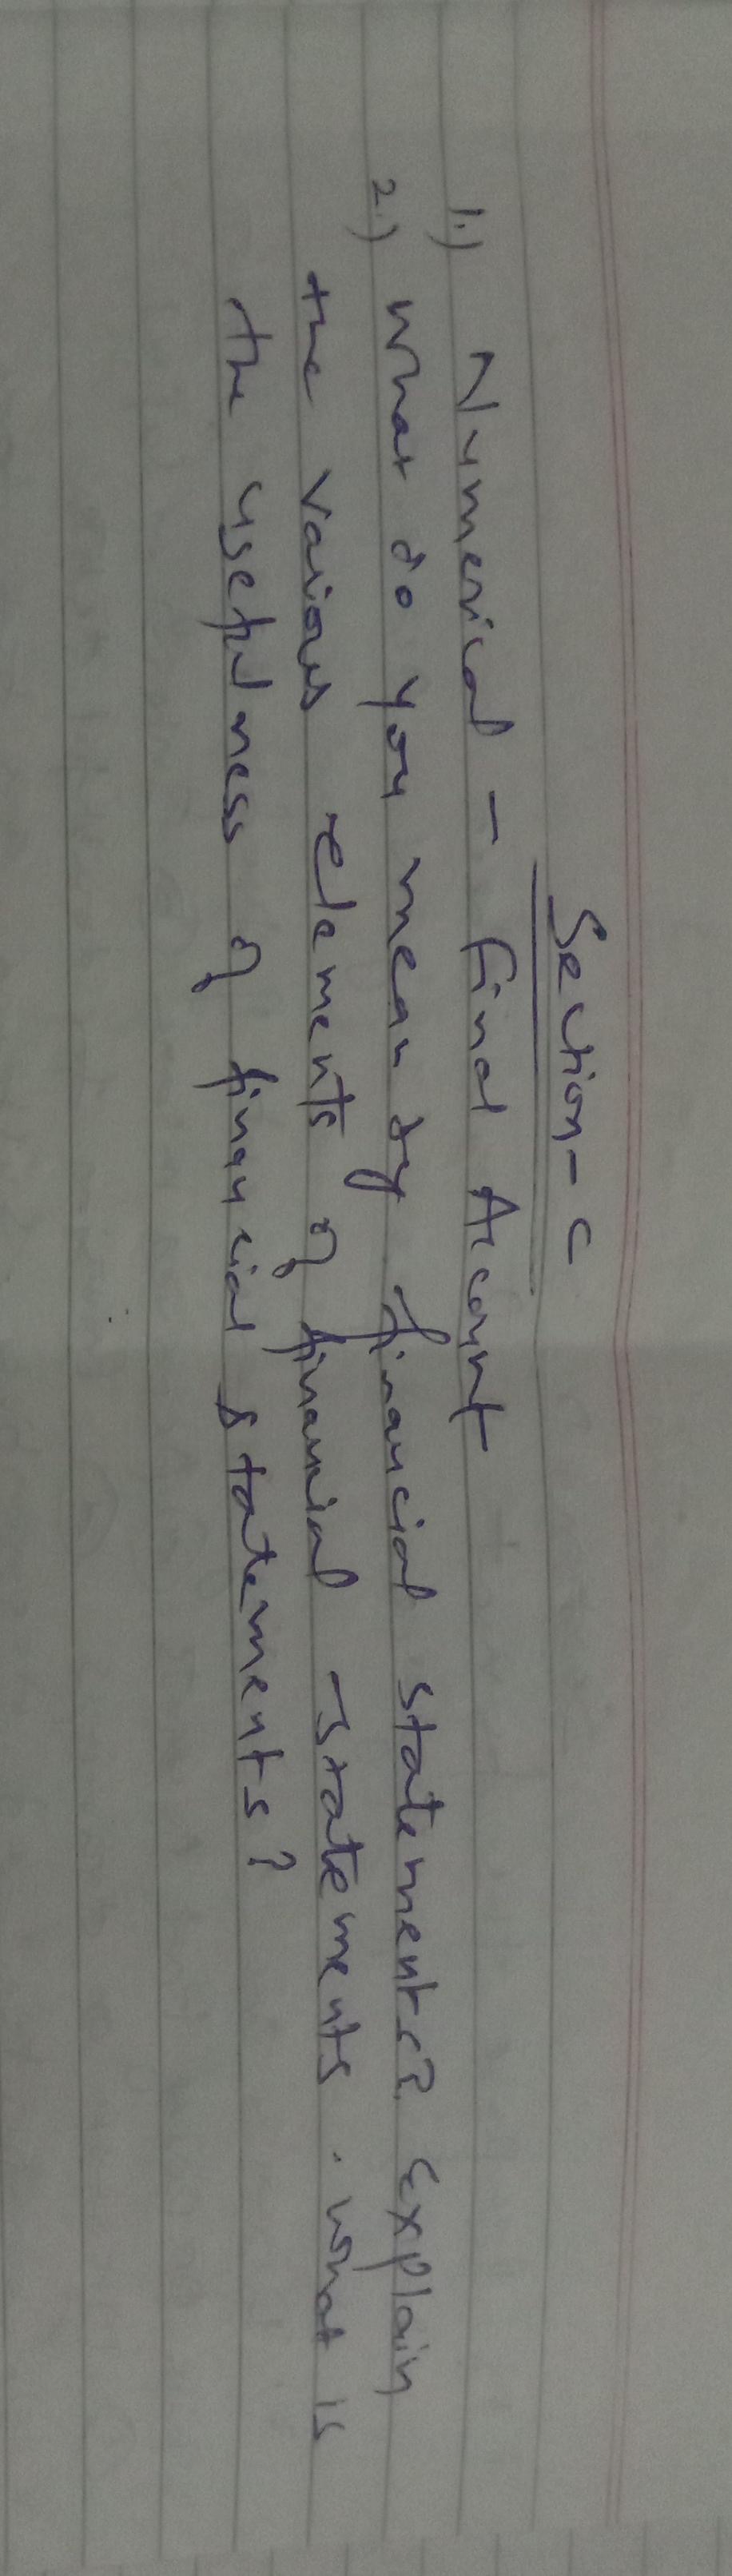 Section-C
1.) Numerical - final Account
2.) What do you mean by financial statements? Explain
the various elements of financial statements. What is
the usefulness of financial statements?